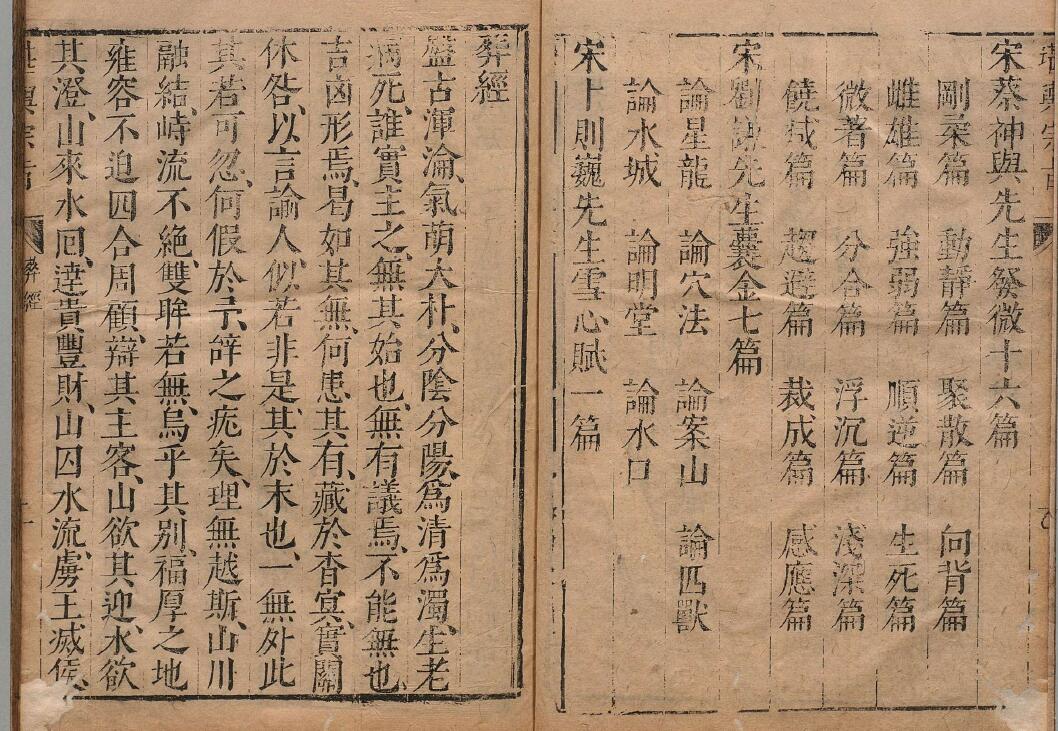 宋蔡神與先生發微十六篇
剛柔篇　動靜篇　聚散篇　向背篇
雌雄篇　強弱篇　順逆篇　生死篇
微著篇　分合篇　浮沉篇　淺深篇
饒減篇　趨避篇　裁成篇　感應篇
宋劉謙先生囊金七篇
論星龍　論穴法　論案山　論四獸
論水城　論明堂　論水口
宋卜則巍先生雪心賦一篇
葬經
盤古渾淪、氣萌大朴、分陰分陽、爲清爲濁、生老
病死、誰實主之、無其始也、無有議焉、不能無也、
吉凶形焉、曷如其無、何患其有、藏於杳冥、實關
休咎、以言諭人、似若非是、其於末也、一無外此
其若可忽、何假於予、辭之疣矣、理無越斯、山川
融結、峙流不絕、雙眸若無、烏乎其別、福厚之地
雍容不迫、四合周顧、辯其主客、山欲其迎、水欲
其澄、山來水囘、逹貴豐財、山囚水流、虜王滅侯、
葬經